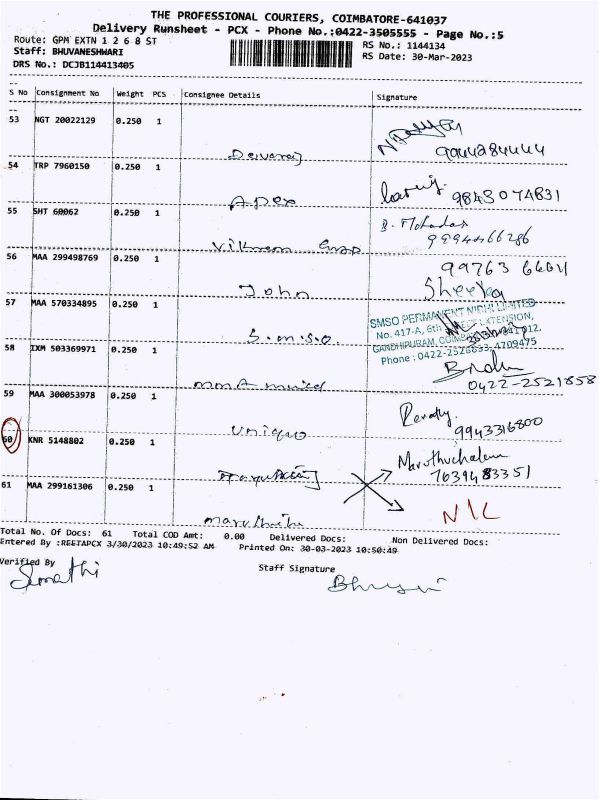 THE PROFESSIONAL COURIERS, COIMBATORE-641037
Delivery Runsheet - PCX - Phone No.:0422-3505555 - Page No.:5
Route: GPM EXTN 1 2 6 8 ST RS No.: 1144134
Staff: BHUVANESHWARI RS Date: 30-Mar-2023
DRS No.: DCJB114413405
S No Consignment No Weight PCS Consignee Details Signature
53 NGT 20022129 0.250 1
Devaraj 9944284444
54 TRP 7960150 0.250 1
Apex 9843074831
55 SHT 60062 0.250 1
Vikram 9994466286
56 MAA 299498769 0.250 1 99763
John Sheeba
57 MAA 570334895 0.250 1 SMSO PERMANENT NIDHI LIMITED
No. 417-A, 6th STREET EXTENSION,
S.m.s.o. GANDHIPURAM, COIMBATORE-641 012.
58 IXM 503369971 0.250 1 Phone : 0422-2526633, 4709475
0422-2521858
59 MAA 300053978 0.250 1 Revathy.
Unique 9943316800
60 KNR 5148802 0.250 1 Maruthuchalam
7639483351
61 MAA 299161306 0.250 1 NIL
Total No. Of Docs: 61 Total COD Amt: 0.00 Delivered Docs: Non Delivered Docs:
Entered By :REETAPCX 3/30/2023 10:49:52 AM Printed On: 30-03-2023 10:50:49
Verified By Staff Signature